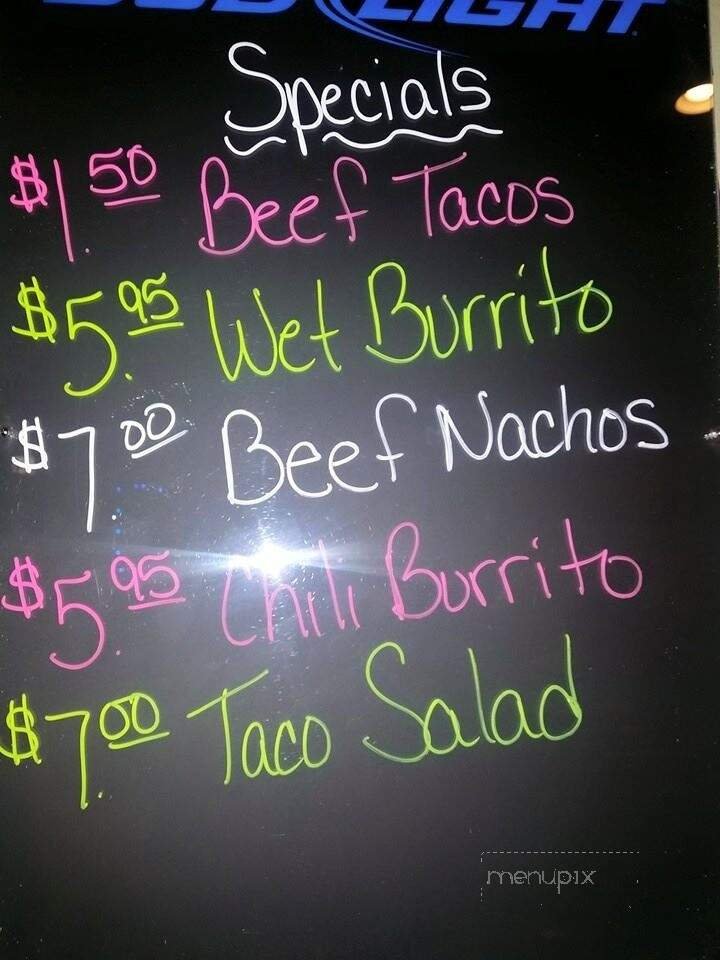 BUD LIGHT
Specials
$1.50 Beef Tacos
$5.95 Wet Burrito
$7.00 Beef Nachos
$5.95 Chili Burrito
$7.00 Taco Salad
menupix